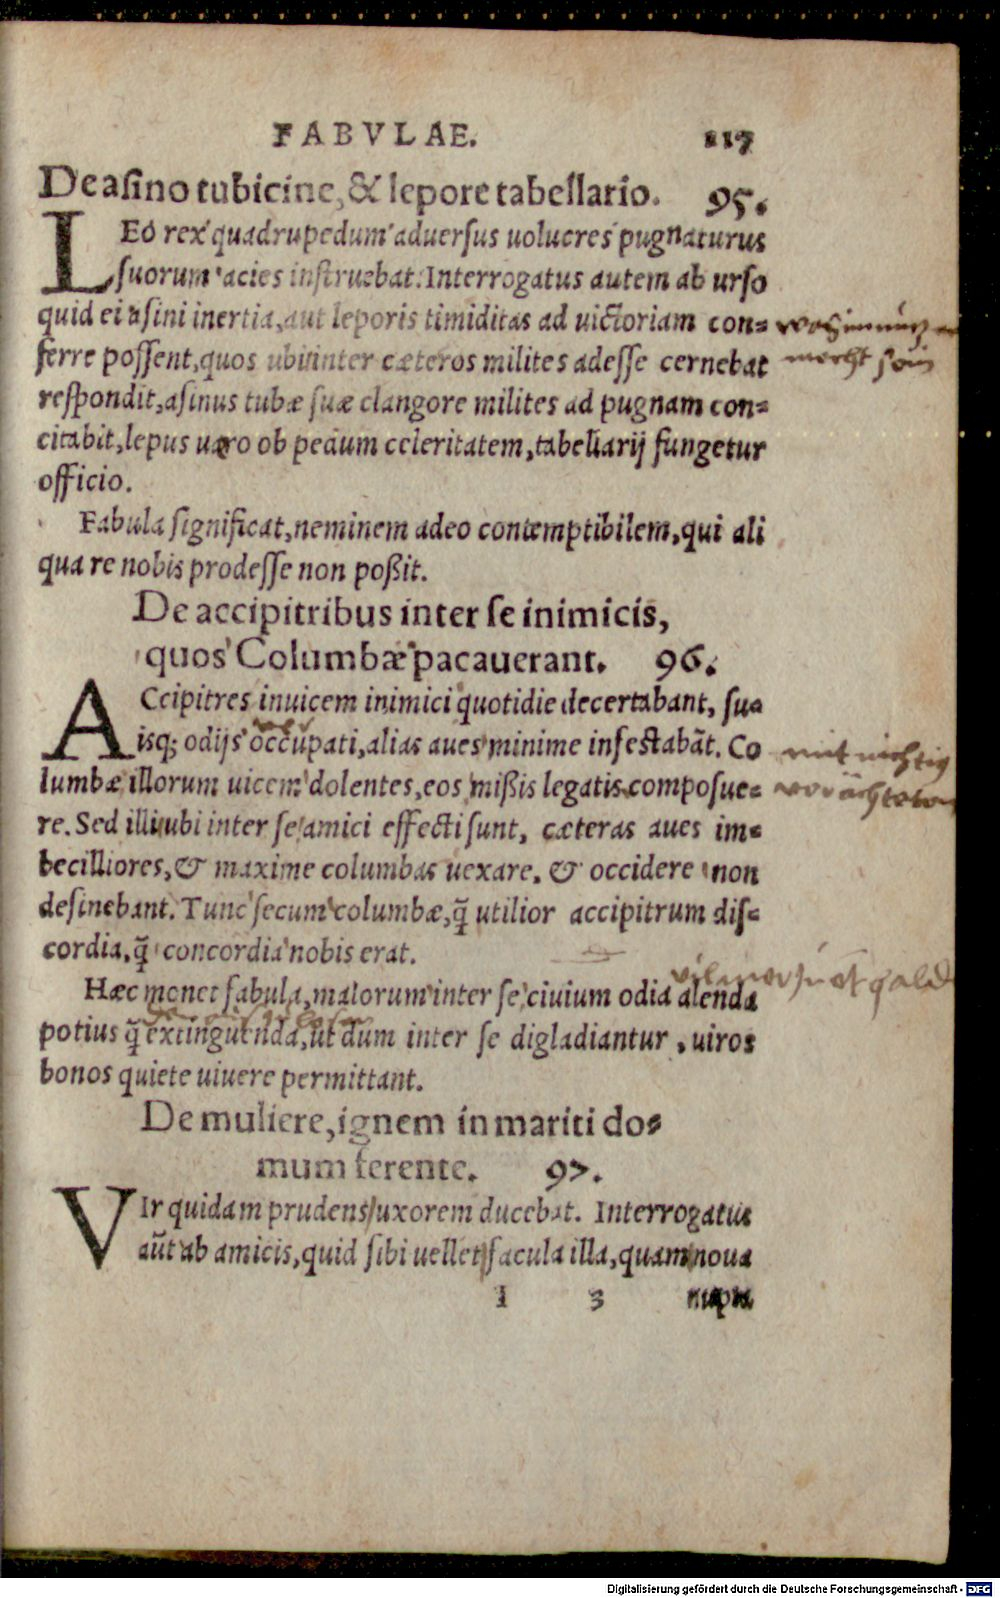 FABVLAE. 117
De asino tubicine, & lepore tabellario. 95.
LEo rex quadrupedum aduersus uolucres pugnaturus
suorum acies instruebat. Interrogatus autem ab urso
quid ei asini inertia, aut leporis timiditas ad uictoriam con=
ferre possent, quos ubi inter cæteros milites adesse cernebat
respondit, asinus tubæ suæ clangore milites ad pugnam con=
citabit, lepus uero ob pedum celeritatem, tabellarij fungetur
officio.
Fabula significat, neminem adeo contemptibilem, qui ali
qua re nobis prodesse non poßit.
De accipitribus inter se inimicis,
quos Columbæ pacauerant. 96.
ACcipitres inuicem inimici quotidie decertabant, su=
isq; odijs occupati, alias aues minime infestabãt. Co
lumbæ illorum uicem dolentes, eos mißis legatis composue=
re. Sed illi ubi inter se amici effecti sunt, cæteras aues im=
becilliores, & maxime columbas uexare, & occidere non
desinebant. Tunc secum columbæ, q̃ utilior accipitrum dis=
cordia, q̃ concordia nobis erat.
Hæc monet fabula, malorum inter se ciuium odia alenda
potius q̃ extinguenda, ut dum inter se digladiantur, uiros
bonos quiete uiuere permittant.
De muliere, ignem in mariti do=
mum ferente. 97.
VIr quidam prudens uxorem ducebat. Interrogatus
aũt ab amicis, quid sibi uellet facula illa, quam noua
I 3 nupta
mit nichtig
Digitalisierung gefördert durch die Deutsche Forschungsgemeinschaft - DFG